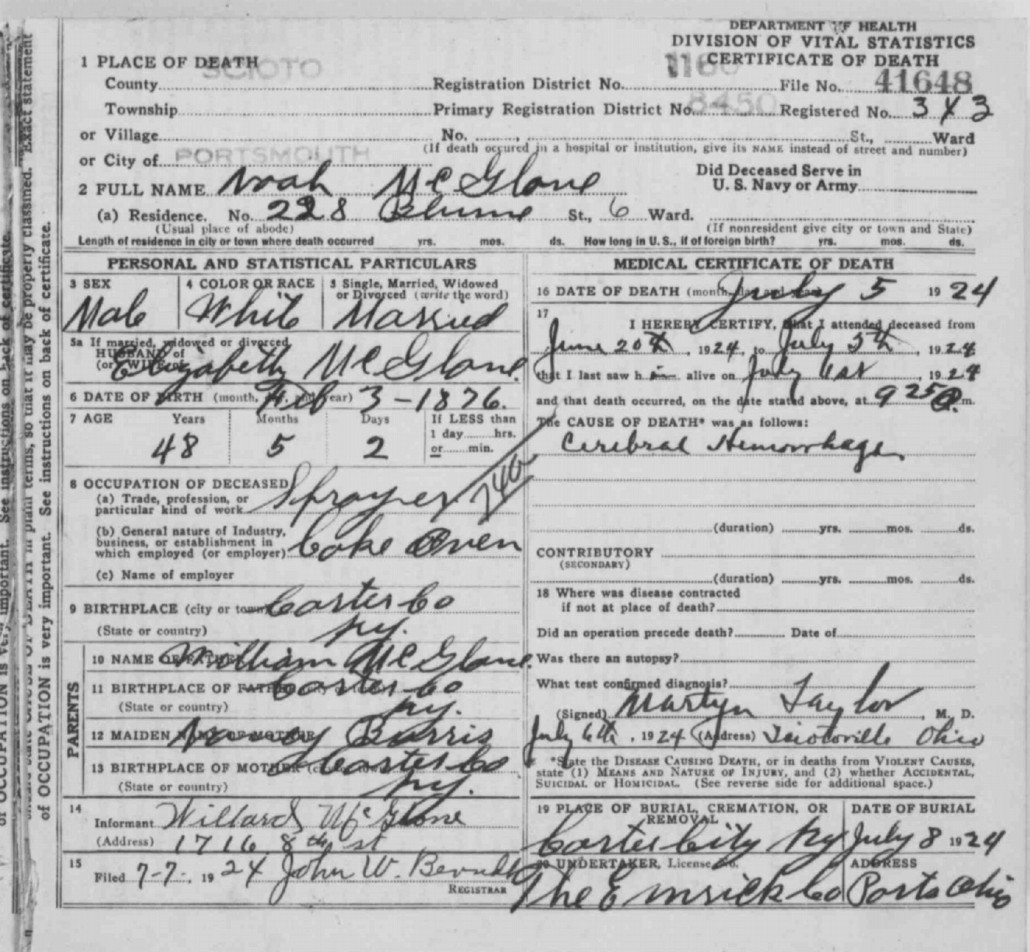 DEPARTMENT OF HEALTH
DIVISION OF VITAL STATISTICS
CERTIFICATE OF DEATH
1 PLACE OF DEATH
SCIOTO
County Registration District No. 1160 File No. 41648
Township Primary Registration District No. 8450 Registered No. 343
or Village No. , St., Ward
(If death occured in a hospital or institution, give its NAME instead of street and number)
or City of PORTSMOUTH
Did Deceased Serve in
U. S. Navy or Army
2 FULL NAME Noah McGlone
(a) Residence. No. 228 St., 6 Ward.
(Usual place of abode) (If nonresident give city or town and State)
Length of residence in city or town where death occurred yrs. mos. ds. How long in U. S., if of foreign birth? yrs. mos. ds.
PERSONAL AND STATISTICAL PARTICULARS
3 SEX 4 COLOR OR RACE 5 Single, Married, Widowed
or Divorced (write the word)
Male White Married
5a If married, widowed or divorced
HUSBAND of
(or) WIFE of Elizabeth McGlone
6 DATE OF BIRTH (month, day, and year) Feb 3-1876.
7 AGE Years Months Days If LESS than
1 day hrs.
or min.
48 5 2
8 OCCUPATION OF DECEASED
(a) Trade, profession, or
particular kind of work Sprayer
(b) General nature of Industry,
business, or establishment in
which employed (or employer) Coke Oven
(c) Name of employer
9 BIRTHPLACE (city or town) Carter Co
(State or country) Ky.
PARENTS
10 NAME OF FATHER William McGlone
11 BIRTHPLACE OF FATHER Carter Co
(State or country) Ky.
12 MAIDEN NAME OF MOTHER Nancy Burris
13 BIRTHPLACE OF MOTHER Carter Co
(State or country) Ky.
14
Informant Willard McGlone
(Address) 1716 8th St
15
Filed 7-7-, 1924 John W.
REGISTRAR
MEDICAL CERTIFICATE OF DEATH
16 DATE OF DEATH (month, day and year) July 5 1924
17
I HEREBY CERTIFY, that I attended deceased from
June 20th, 1924, to July 5th, 1924
that I last saw him alive on July 1st 1924
and that death occurred, on the date stated above, at 9 25 P.m.
The CAUSE OF DEATH* was as follows:
Cerebral Hemorrhage
(duration) yrs. mos. ds.
CONTRIBUTORY
(SECONDARY)
(duration) yrs. mos. ds.
18 Where was disease contracted
if not at place of death?
Did an operation precede death? Date of
Was there an autopsy?
What test confirmed diagnosis?
(Signed) Martyn Taylor, M. D.
July 6th, 1924 (Address) Sciotoville Ohio
*State the DISEASE CAUSING DEATH, or in deaths from VIOLENT CAUSES,
state (1) MEANS AND NATURE OF INJURY, and (2) whether ACCIDENTAL,
SUICIDAL or HOMICIDAL. (See reverse side for additional space.)
19 PLACE OF BURIAL, CREMATION, OR
REMOVAL DATE OF BURIAL
Carter City Ky July 8 1924
20 UNDERTAKER, License No. ADDRESS
The Emrick Co Ports Ohio
See instructions on back of certificate.
in plain terms, so that it may be properly classified. Exact statement
of OCCUPATION is very important. See instructions on back of certificate.